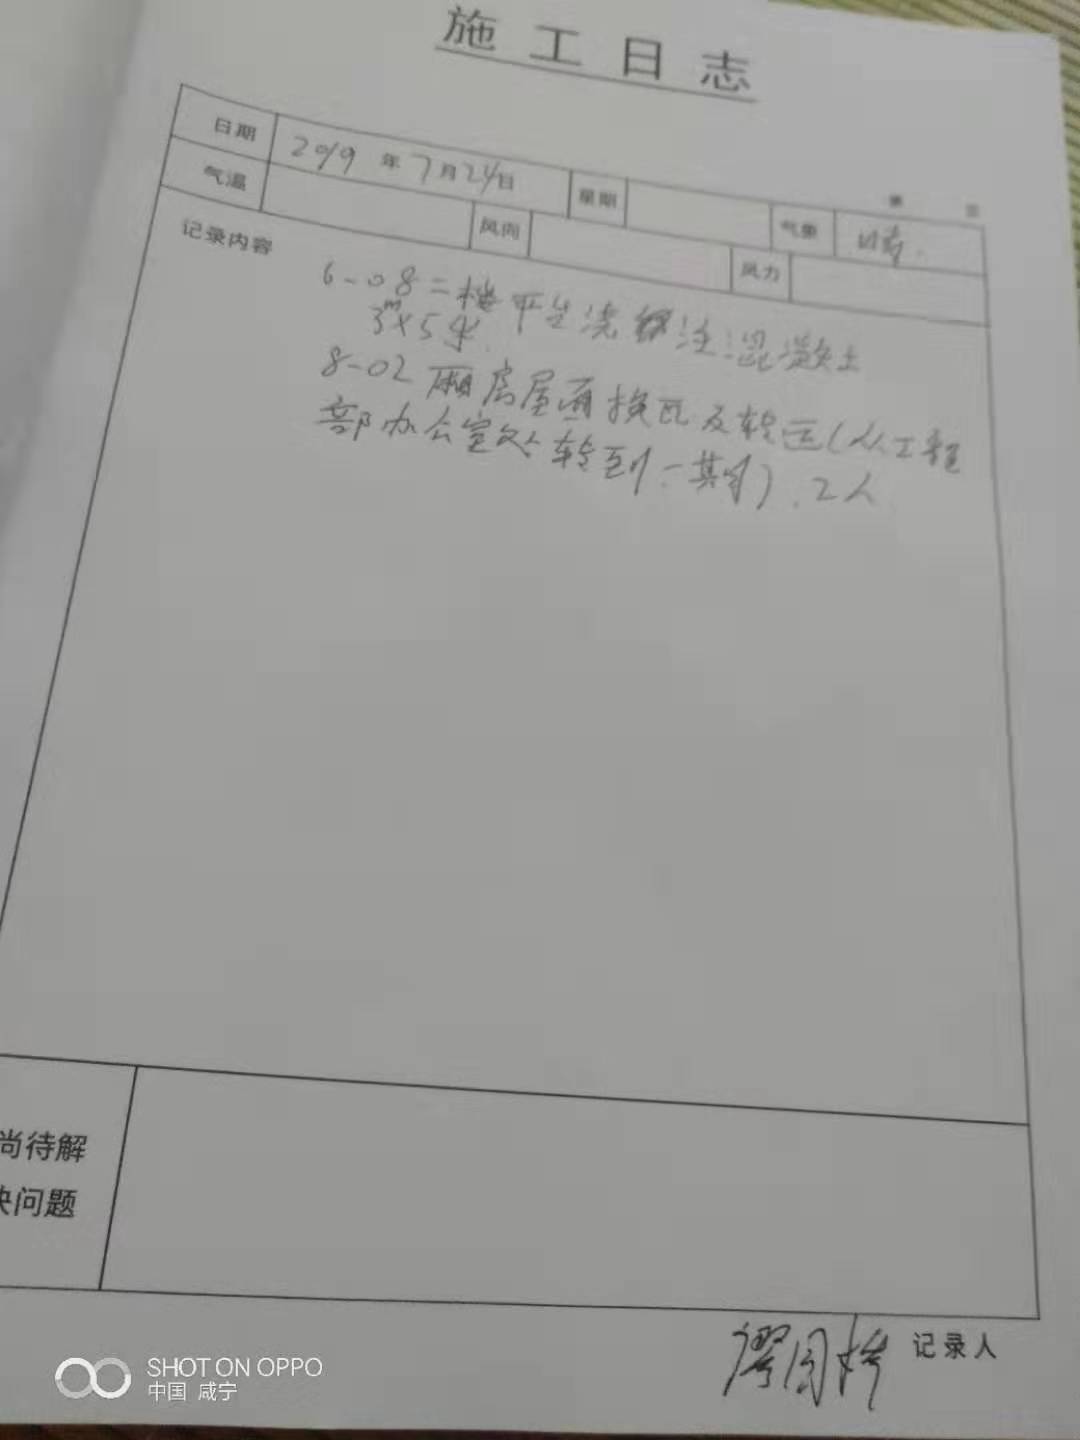 施工日志
第 页
日期 2019年7月24日 星期 气象 晴.
气温 风向 风力
记录内容
6-08二楼平台浇注混凝土
3m×5米.
8-02厢房屋面换瓦及转运(从工程
部办公室处转到一期).2人
尚待解
决问题
记录人
SHOT ON OPPO
中国 咸宁